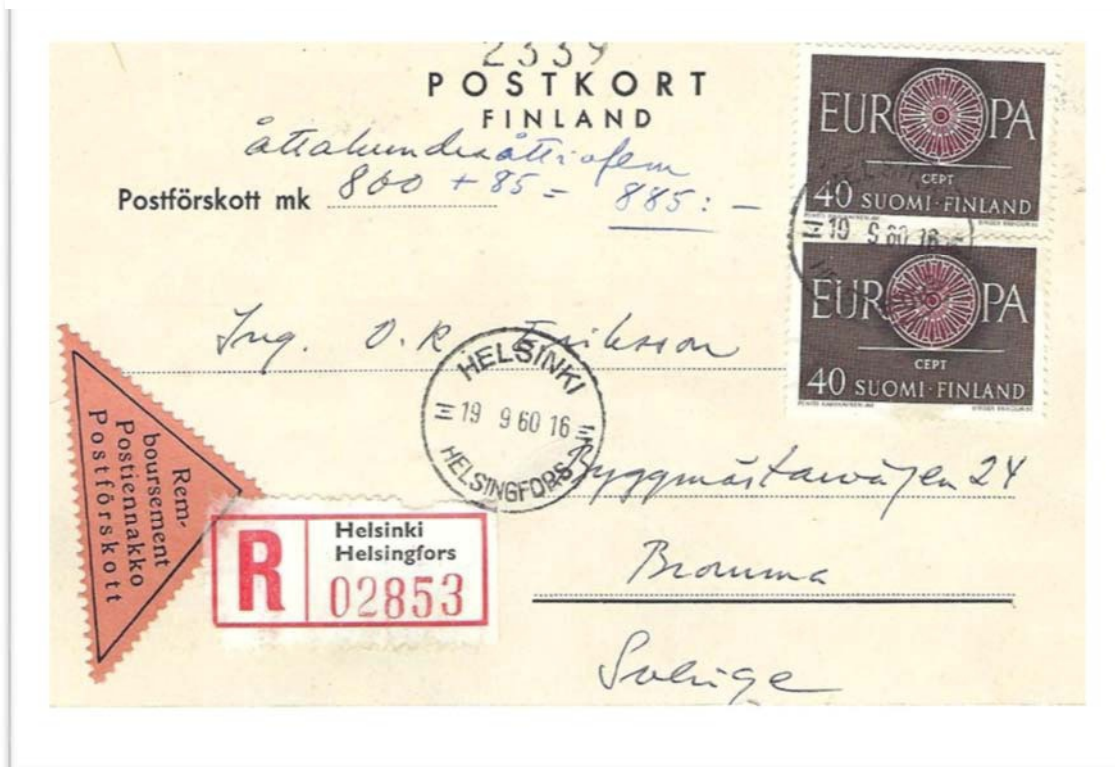 2339
POSTKORT
FINLAND
åttahundraåttiofem
Postförskott mk 800 + 85 = 885: -
EUROPA
CEPT
40 SUOMI · FINLAND
19 9 60 16
EUROPA
CEPT
40 SUOMI · FINLAND
Ing. O. R. Eriksson
HELSINKI
19 9 60 16
HELSINGFORS
Byggmästarvägen 24
Bromma
Sverige
Rem-
boursement
Postiennakko
Postförskott
R
Helsinki
Helsingfors
02853